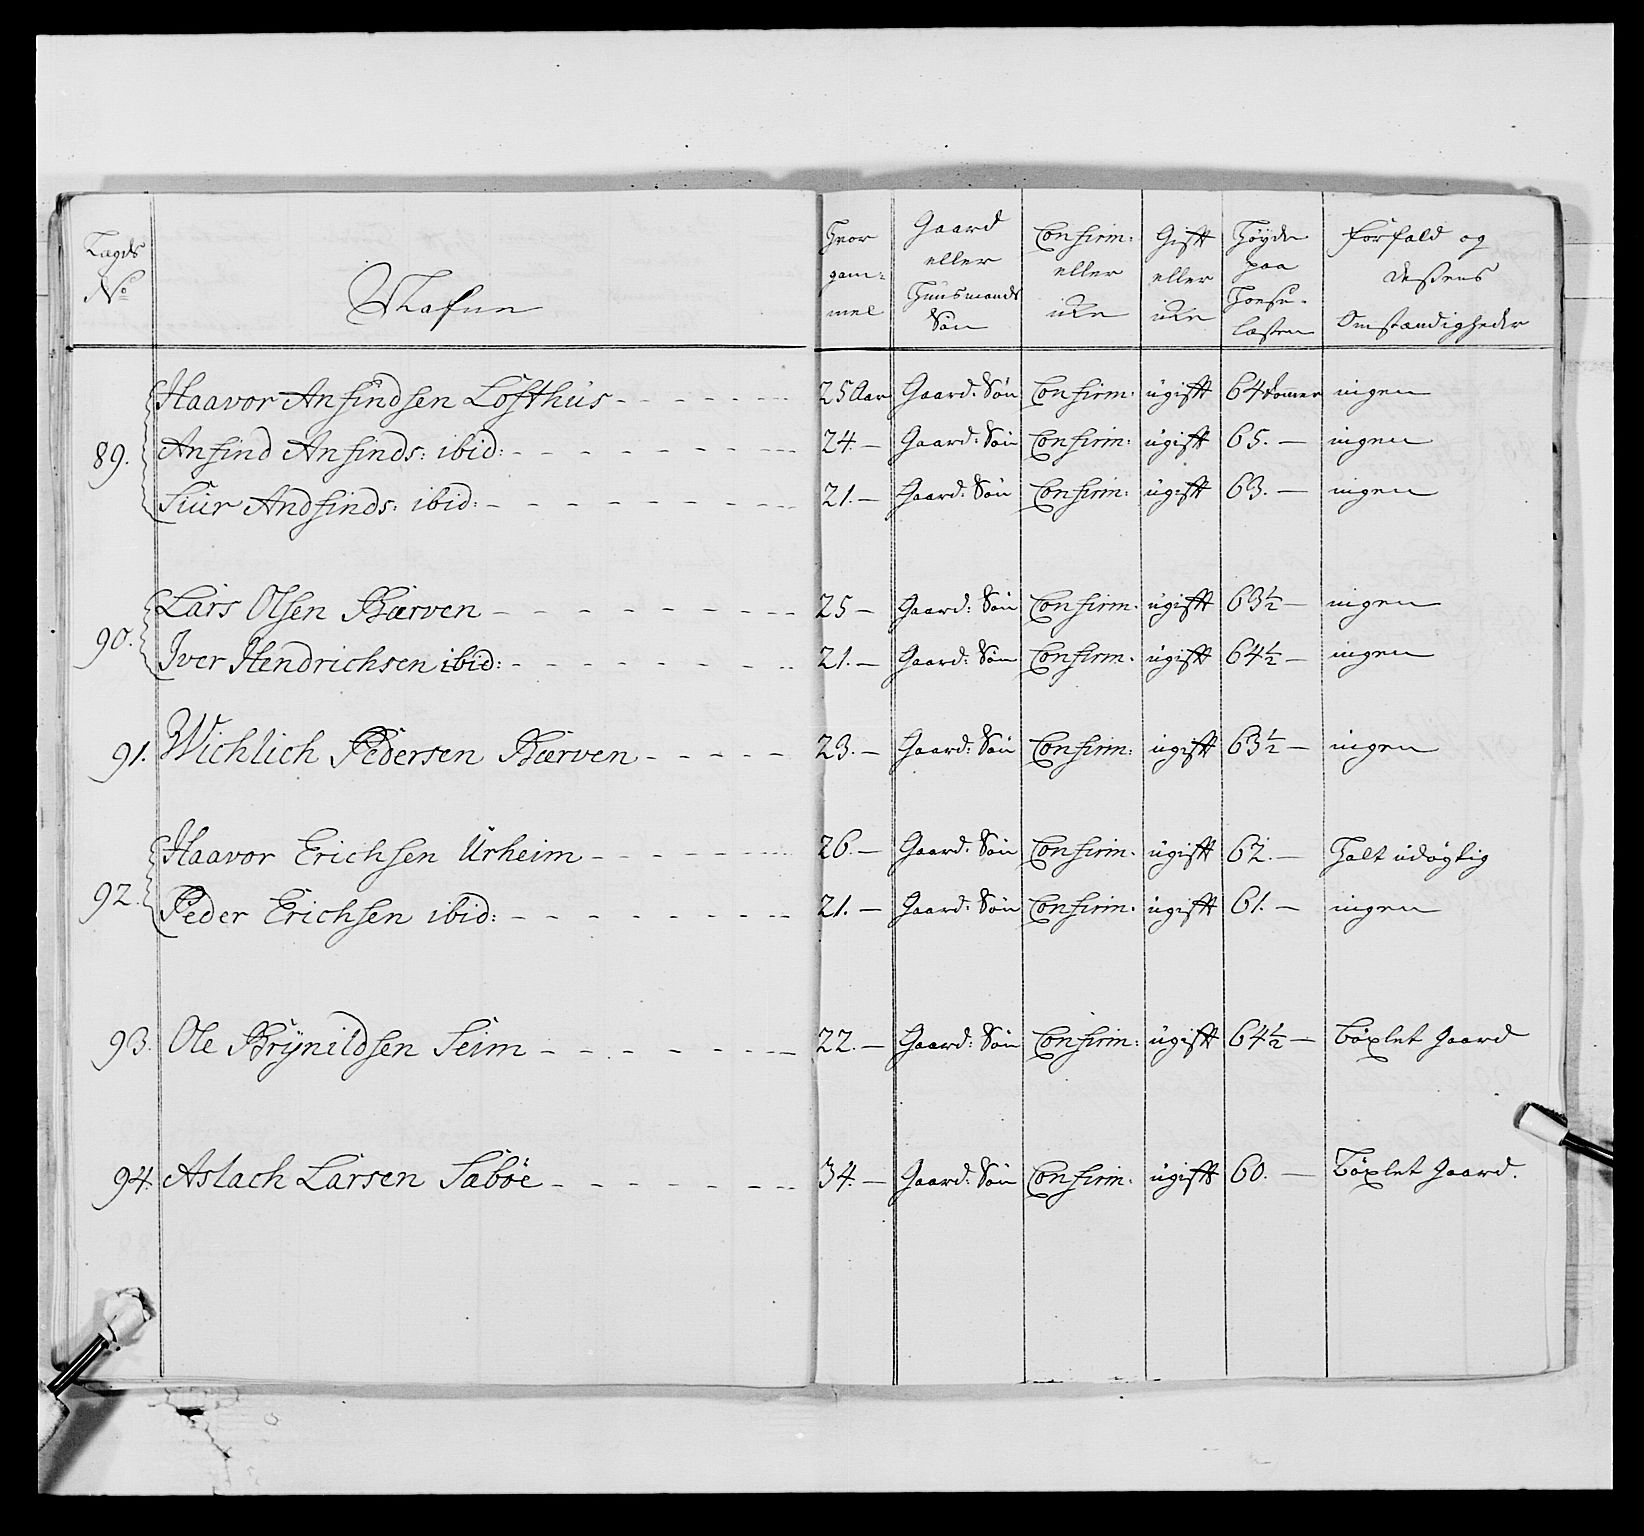 Lægds No | Nafne | Hvor gam= mel | Gaard eller Huusmands Søn | Confirm: eller icke | Gift eller icke | Høyde paa Hoesu- læsten | Forfald og deßens Omstændigheder
89. Haavor Anfindsen Lofthús - - - 25 Aar Gaard: Søn Confirm: úgift 64 tommer ingen
Anfind Anfinds: ibid: - - - 24. — Gaard: Søn Confirm: úgift 65. — ingen
Siúr Andfinds: ibid: - - - 21. — Gaard: Søn Confirm: úgift 63. — ingen
90. Lars Olsen Bærven - - - 25 — Gaard: Søn Confirm: úgift 63½ — ingen
Iver Hendrichsen ibid: - - - 21. — Gaard: Søn Confirm: úgift 64½ — ingen
91. Wichlich Pedersen Bærven - - - 23. — Gaard: Søn Confirm: úgift 63½ — ingen
92. Haavor Erichsen Úrheim - - - 26. — Gaard: Søn Confirm: úgift 62. — Halt údøgtig
Peder Erichsen ibid: - - - 21. — Gaard: Søn Confirm: úgift 61. — ingen
93. Ole Brÿnildsen Seim - - - 22. — Gaard: Søn Confirm: úgift 64½ — Bøxlet Gaard
94. Aslach Larsen Sæbøe - - - 34. — Gaard: Søn Confirm: úgift 60. — Bøxlet Gaard.